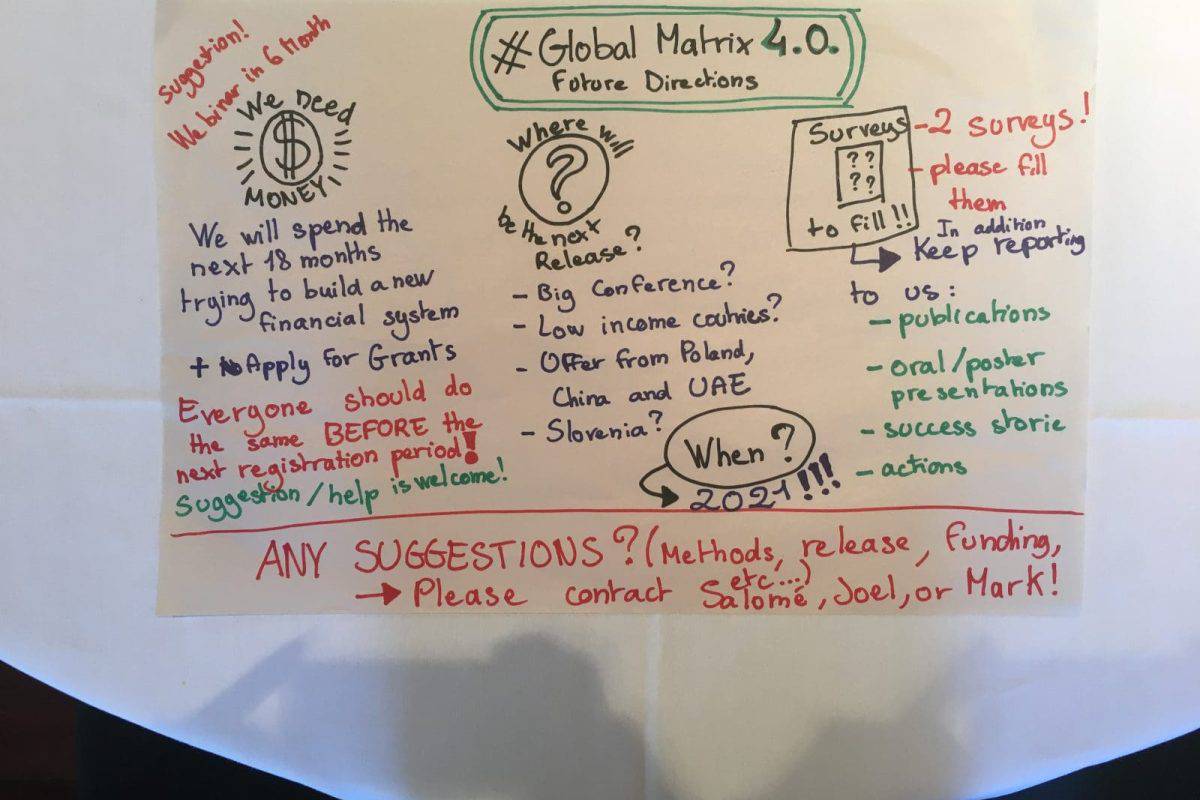 # Global Matrix 4.0.
Future Directions
Suggestion!
Webinar in 6 Month
We need
$
MONEY
We will spend the
next 18 months
trying to build a new
financial system
+ Apply for Grants
Everyone should do
the same BEFORE the
next registration period!
Suggestion/help is welcome!
Where will
?
be the next
Release?
- Big Conference?
- Low income coutries?
- Offer from Poland,
China and UAE
- Slovenia?
When?
2021!!!
Surveys
? ?
? ?
to fill!!
- 2 surveys!
- please fill
them
In addition
Keep reporting
to us:
- publications
- oral/poster
presentations
- success storie
- actions
ANY SUGGESTIONS? (Methods, release, funding,
etc...)
→ Please contact Salomé, Joel, or Mark!